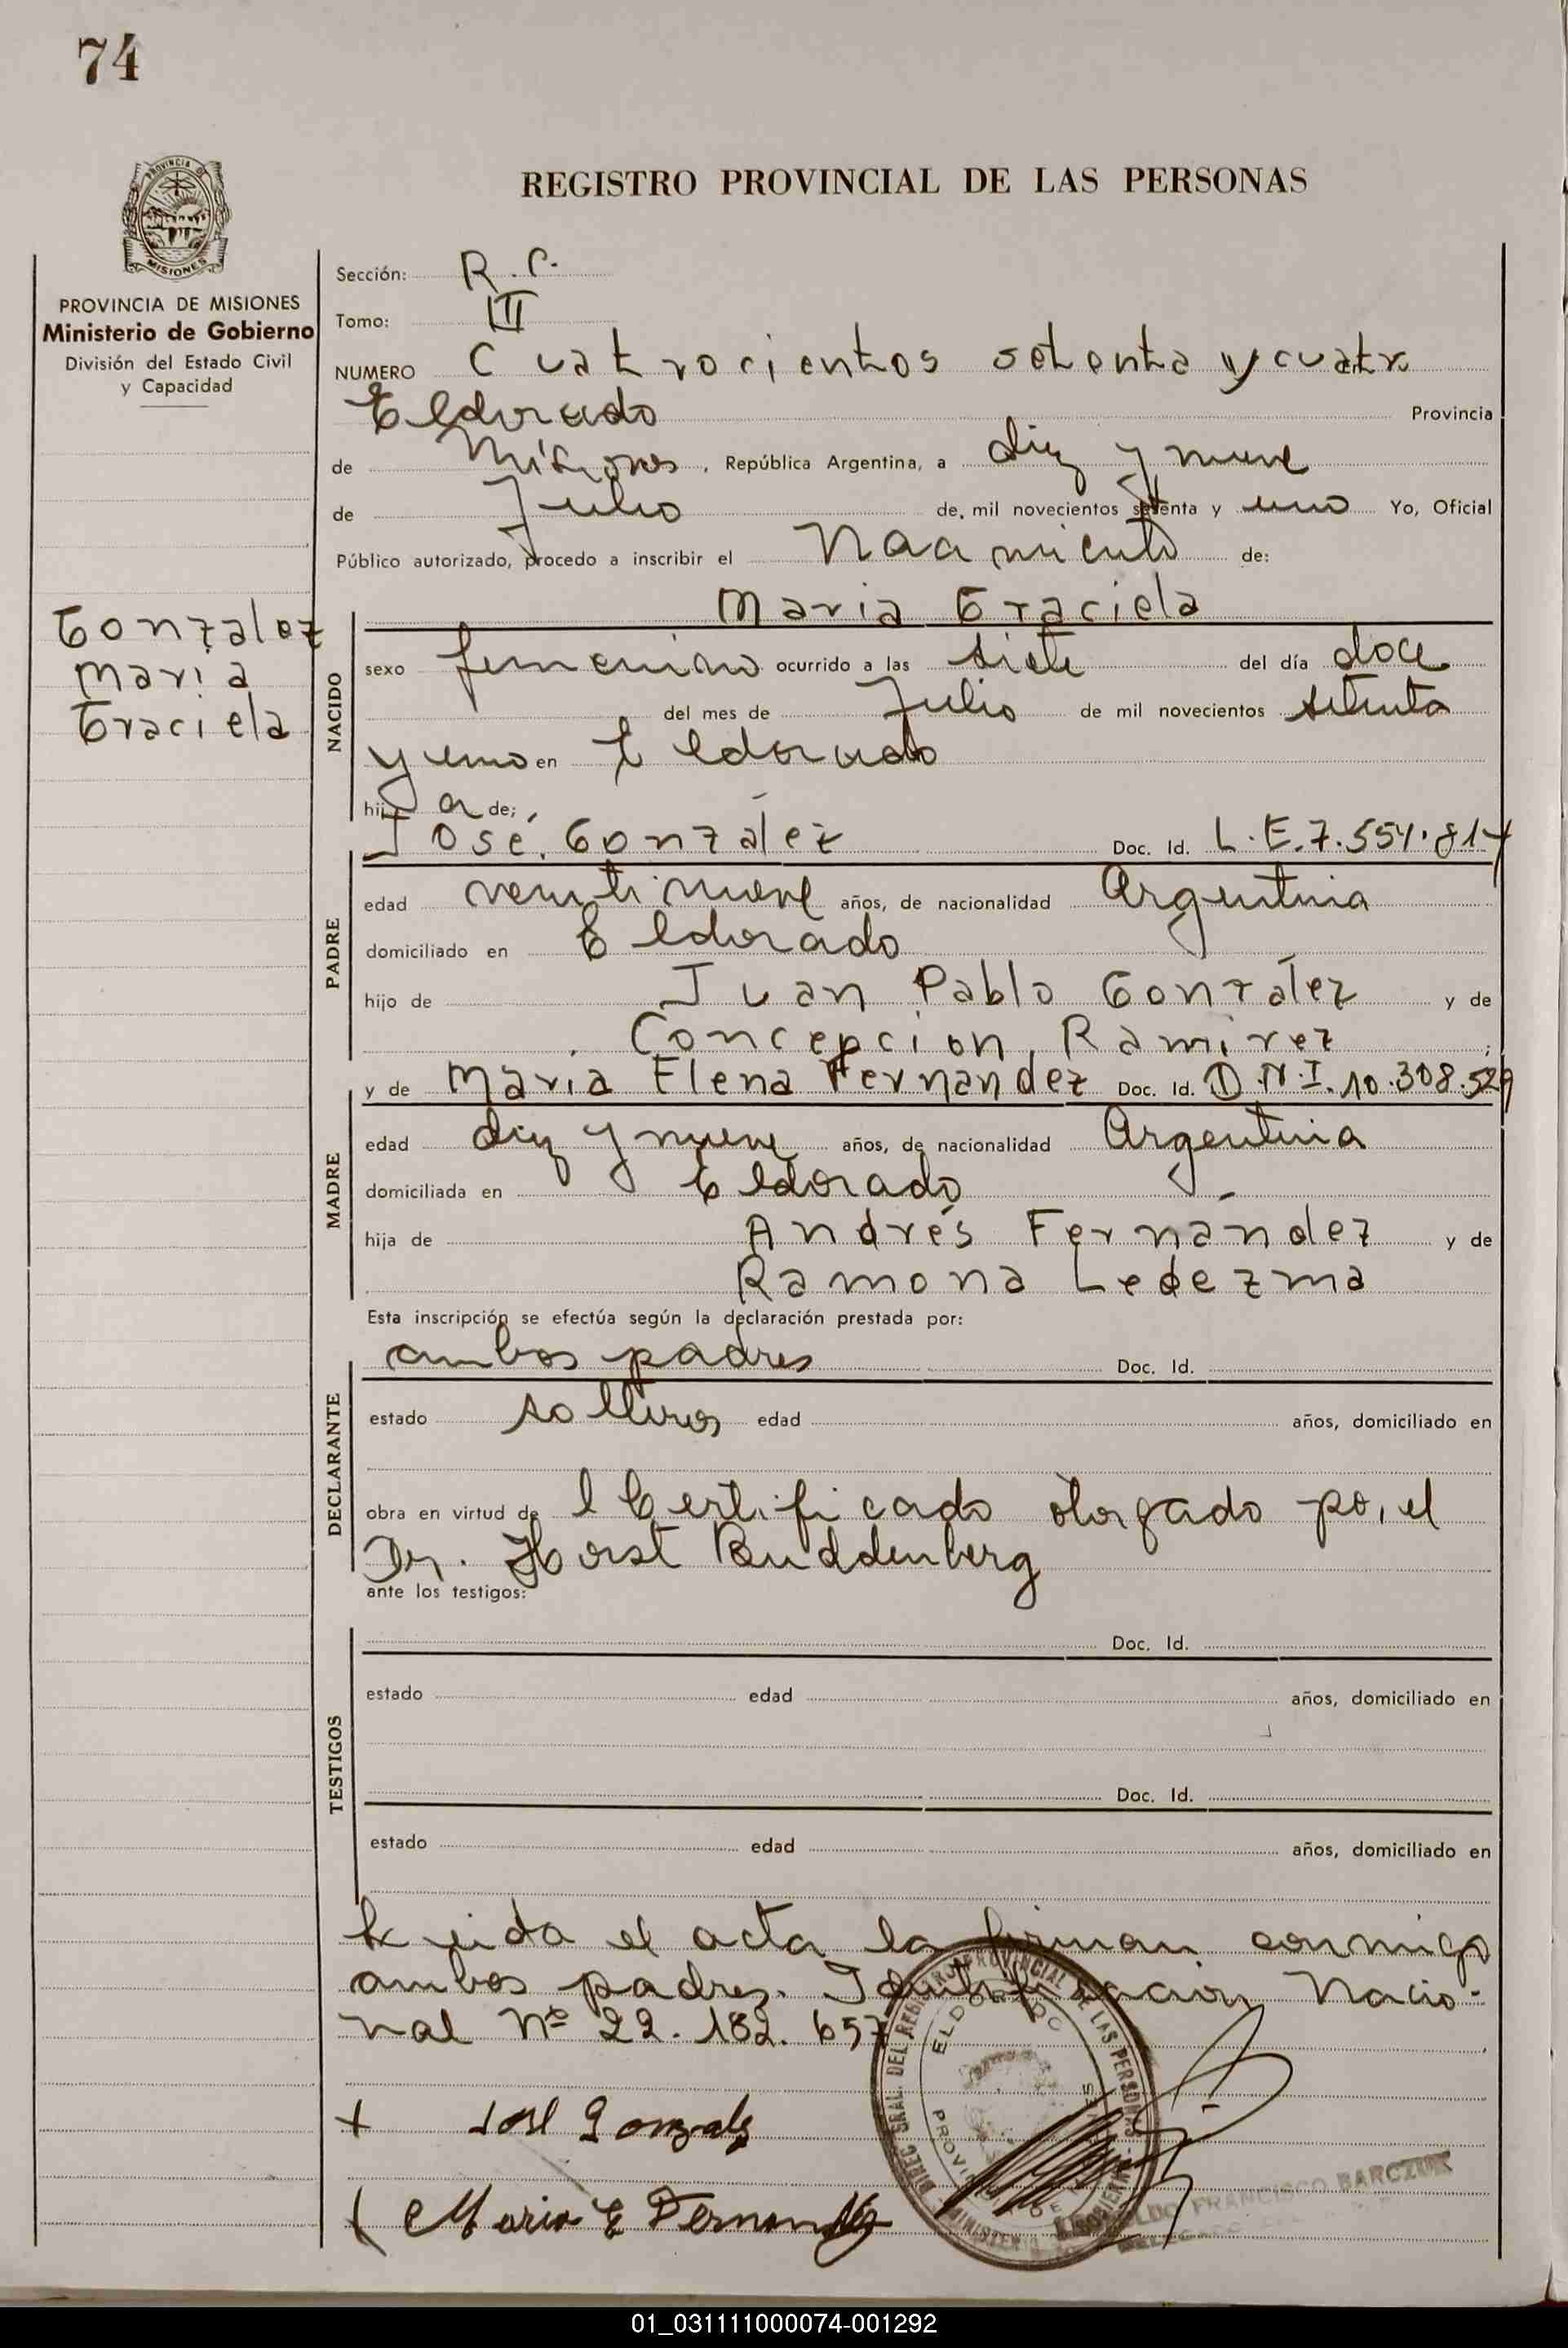 74
PROVINCIA
MISIONES
PROVINCIA DE MISIONES
Ministerio de Gobierno
División del Estado Civil
y Capacidad
Gonzalez
Maria
Graciela
REGISTRO PROVINCIAL DE LAS PERSONAS
Sección: R. C.
Tomo: III
NUMERO Cuatrocientos setenta y cuatro
Eldorado Provincia
de Misiones, República Argentina, a diez y nueve
de Julio de mil novecientos setenta y uno Yo, Oficial
Público autorizado, procedo a inscribir el Nacimiento de:
Maria Graciela
NACIDO
sexo femenino ocurrido a las siete del día doce
del mes de Julio de mil novecientos setenta
y uno en Eldorado
hij a de;
José González Doc. Id. L.E.7.551.817
PADRE
edad veinti nueve años, de nacionalidad Argentina
domiciliado en Eldorado
hijo de Juan Pablo González y de
Concepcion Ramirez ;
y de Maria Elena Fernandez Doc. Id. D.N.I. 10.308.529
MADRE
edad diez y nueve años, de nacionalidad Argentina
domiciliada en Eldorado
hija de Andrés Fernández y de
Ramona Ledezma
Esta inscripción se efectúa según la declaración prestada por:
ambos padres Doc. Id.
DECLARANTE
estado solteros edad años, domiciliado en
obra en virtud de l Certificado otorgado por el
Dr. Horst Buddenberg
ante los testigos:
TESTIGOS
Doc. Id.
estado edad años, domiciliado en
Doc. Id.
estado edad años, domiciliado en
Leida el acta la firman conmigo
ambos padres. Identificacion Nacio-
nal Nº 22.182.657
DIREC. GRAL. DEL REGISTRO PROVINCIAL DE LAS PERSONAS
ELDORADO
José Gonzalez
Maria E Fernandez
FRANCISCO BARCZUK
01_031111000074-001292